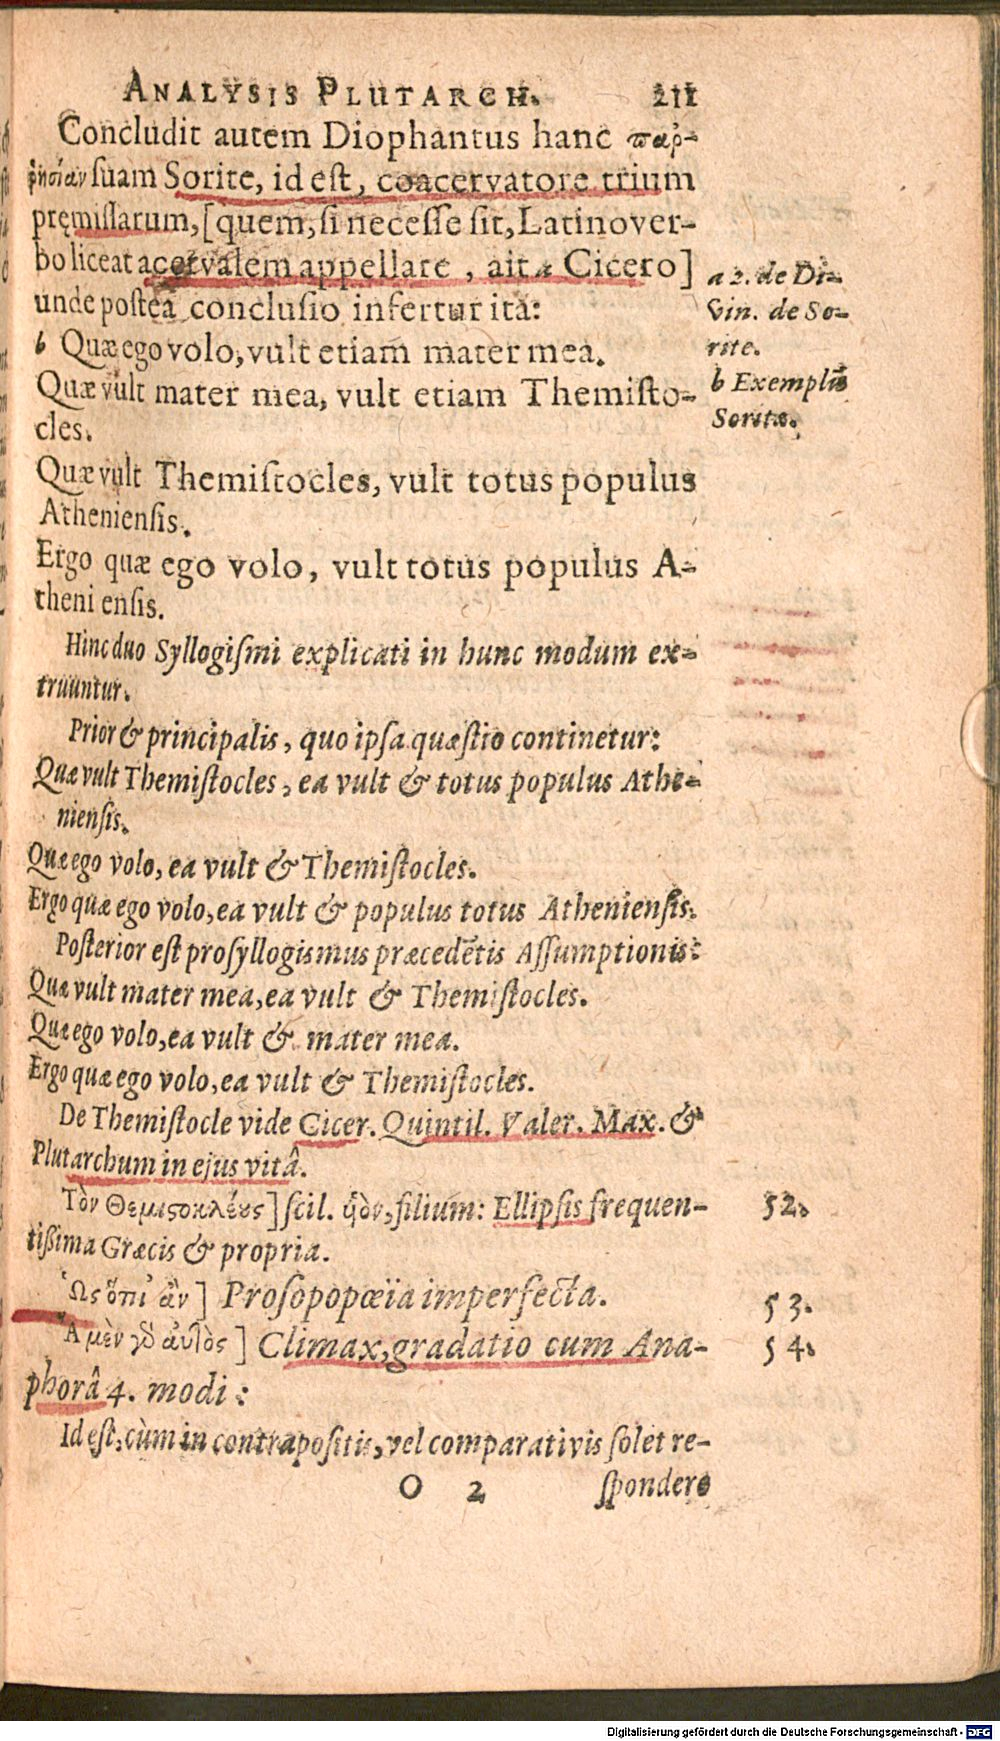 ANALYSIS PLUTARCH. 211
Concludit autem Diophantus hanc παῤ-
ῥησίαν suam Sorite, id est, coacervatore trium
pręmissarum, [quem, si necesse sit, Latino ver-
bo liceat acervalem appellare, ait a Cicero]
unde postea conclusio infertur ita:
b Quæ ego volo, vult etiam mater mea.
Quæ vult mater mea, vult etiam Themisto-
cles.
Quæ vult Themistocles, vult totus populus
Atheniensis.
Ergo quæ ego volo, vult totus populus A-
theniensis.
Hinc duo Syllogismi explicati in hunc modum ex-
truuntur.
Prior & principalis, quo ipsa quæstio continetur:
Quæ vult Themistocles, ea vult & totus populus Athe-
niensis.
Quæ ego volo, ea vult & Themistocles.
Ergo quæ ego volo, ea vult & populus totus Atheniensis.
Posterior est prosyllogismus præcedẽtis Assumptionis:
Quæ vult mater mea, ea vult & Themistocles.
Quæ ego volo, ea vult & mater mea.
Ergo quæ ego volo, ea vult & Themistocles.
De Themistocle vide Cicer. Quintil. Valer. Max. &
Plutarchum in ejus vitâ.
Τὸν Θεμιςοκλέους] scil. ὑὸν, filium: Ellipsis frequen-
tissima Græcis & propria.
Ὡς ὅπι ἂν] Prosopopœiia imperfecta.
Ἃ μὲν γὸ αὐτὸς] Climax, gradatio cum Ana-
phorâ 4. modi:
Id est, cùm in contrapositis, vel comparativis solet re-
O 2 spondere
a 2. de Di-
vin. de So-
rite.
b Exemplũ
Soritæ.
52.
53.
54.
Digitalisierung gefördert durch die Deutsche Forschungsgemeinschaft - DFG